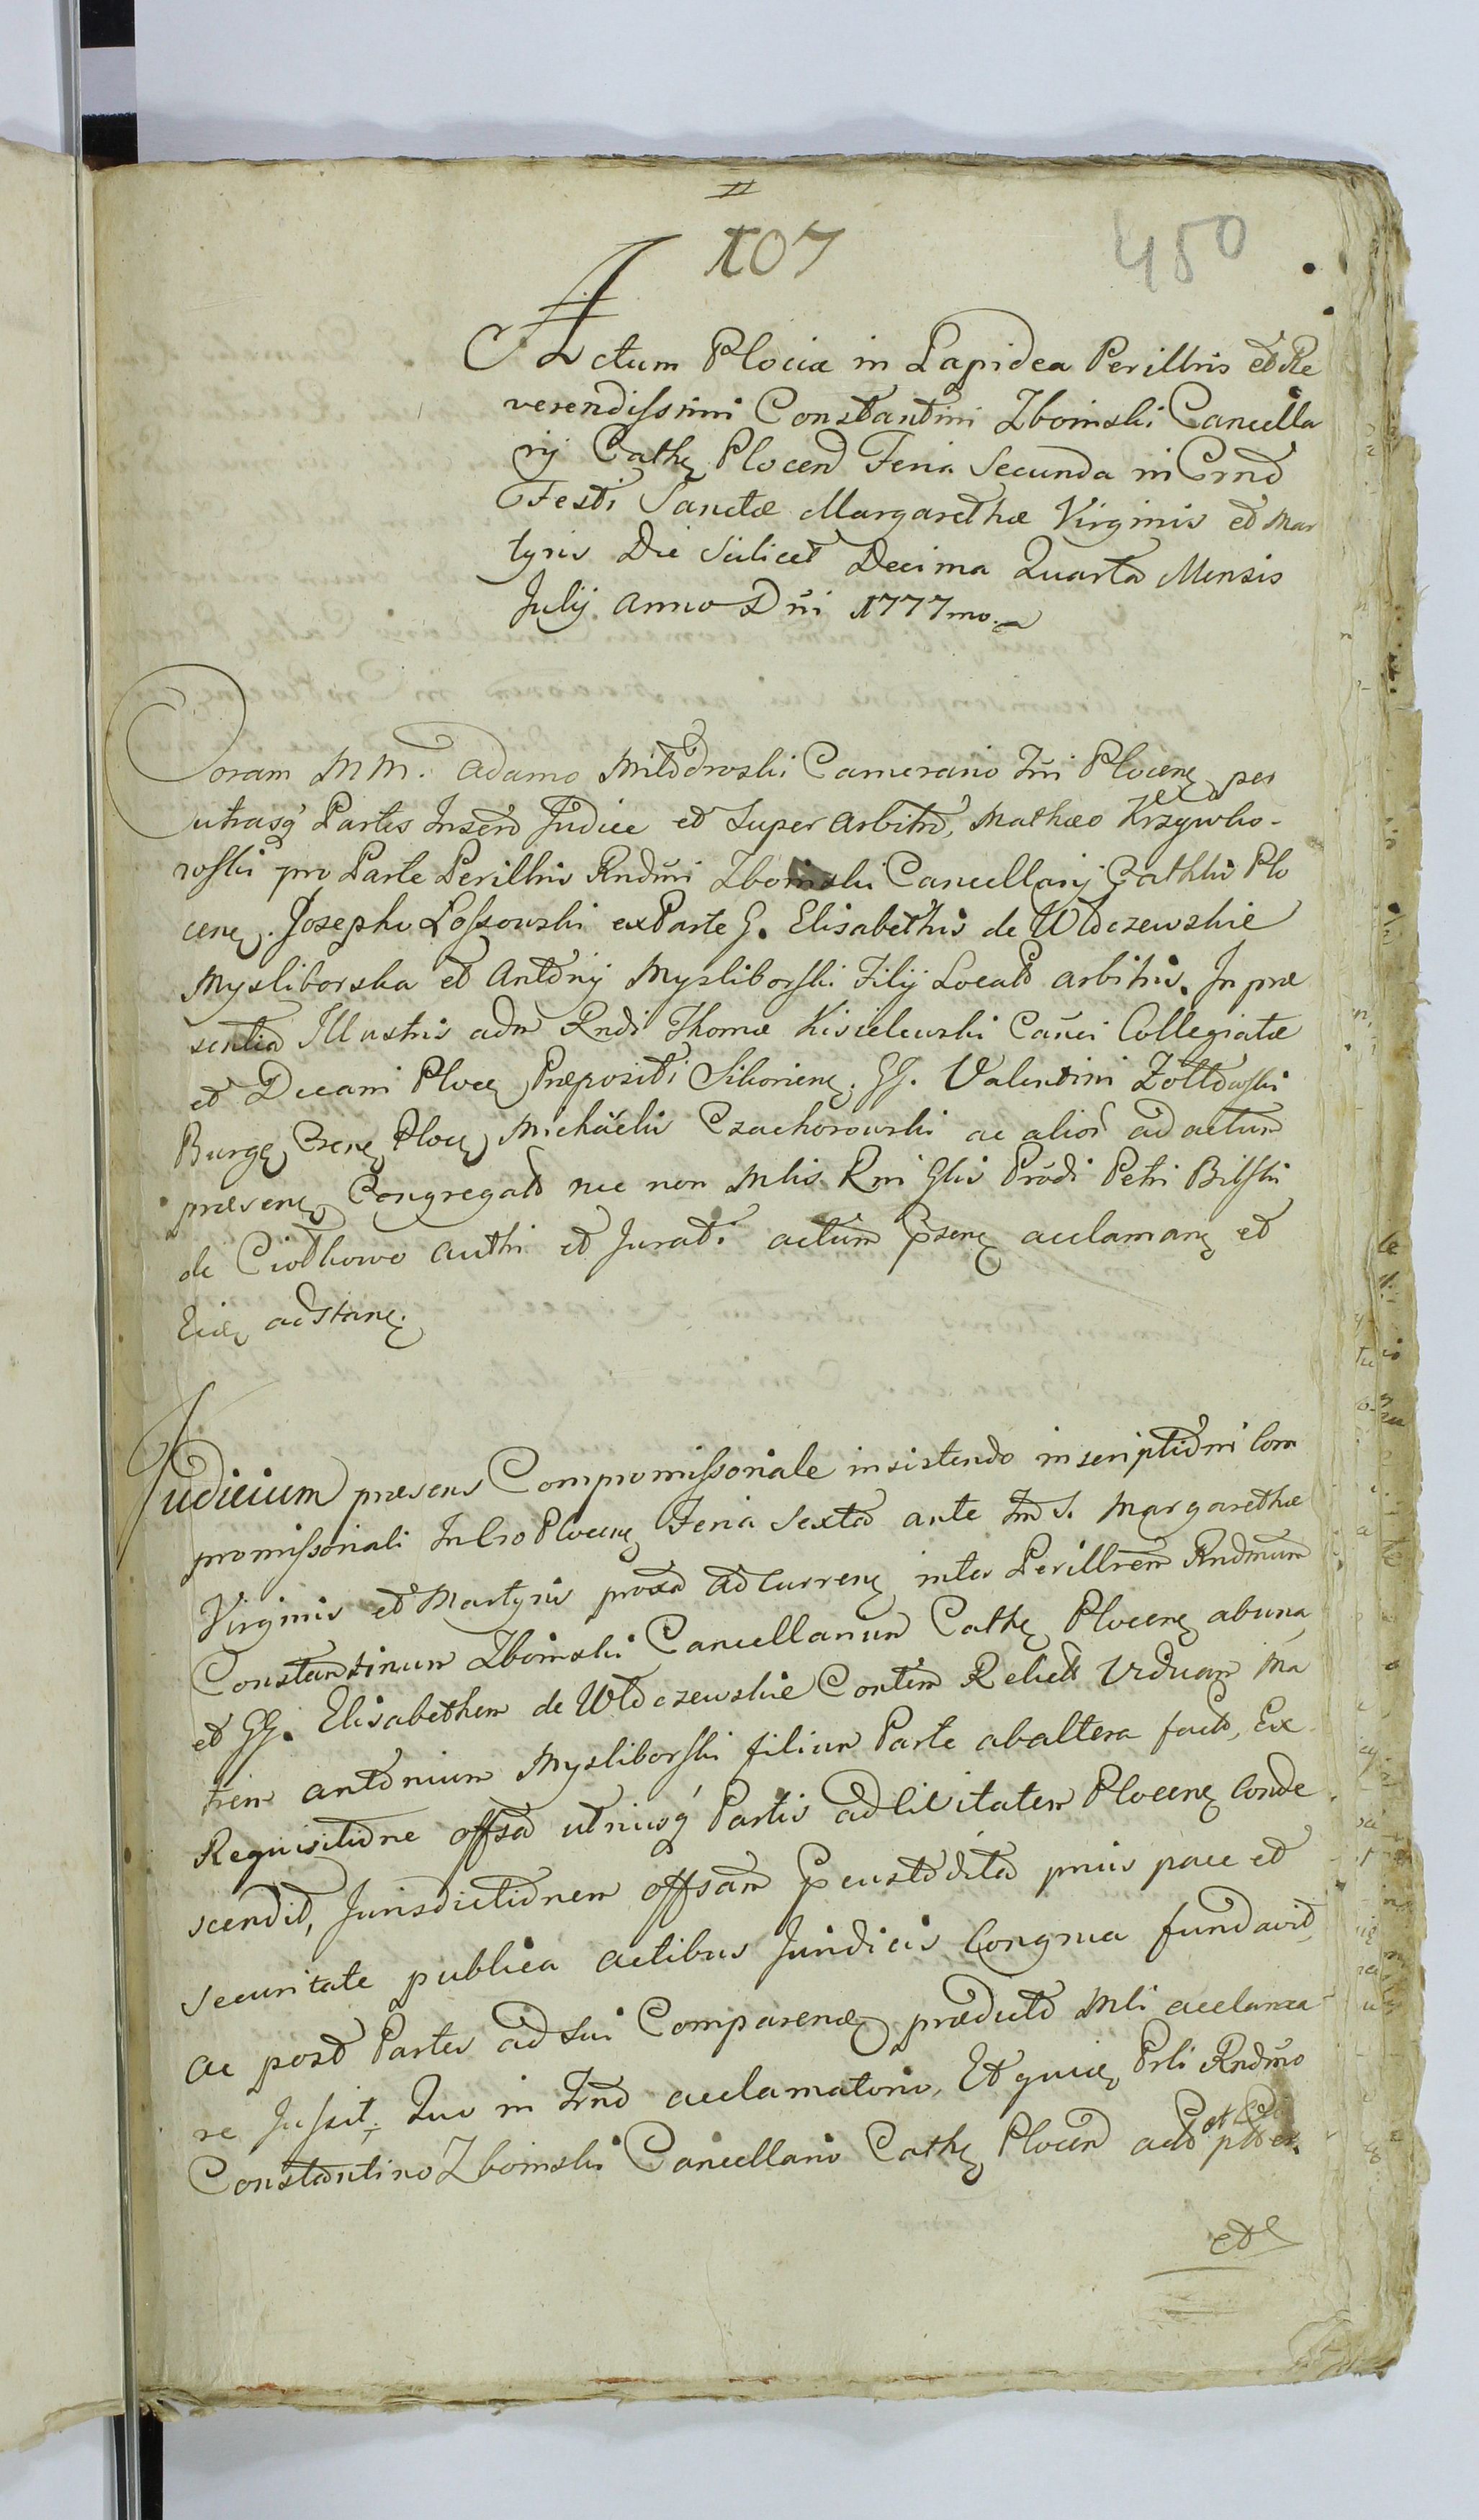 II
107
450
Actum Plociæ in Lapidea Perillris et Re
verendissimi Constantini Zboinski Cancella
rij Cathe Plocen Feria Secunda in Crno
Festi Sanctæ Margarethæ Virginis et Mar
tyris Die Scilicet Decima Quarta Mensis
Julij Anno Dni 1777mo.
Coram MM. Adamo Camerario Plocen per
utrasq Partes Judice et Super Arbitro, Mathæo Krzywko-
roski pro Parte Perillris Rndmi Zboinski Cancellarij Cathlis Plo
cen. Josepho Lossowski ex Parte G. Elisabethis de Wloczewskie
Mysliborska et Antonij Mysliborski Filij Locato arbitris. In præ
sentia Illustris adm Rndi Thomæ Kisielewski Canci Collegiatæ
et Decani Ploce Præpositi Sikorien. GG. Valentini Zołtowski
Burge Ploce Michäelis Czachorowski ac alior ad actum
præsen Congregato nec non Mlis Rni Glis Prodi Petri Bilski
de Ciołkowo authi et Jurati actum pren acclaman et
adstan.
Judicium præsens Compromissoriale insistendo inscriptioni Com
promissoriali Plocen Feria Sexta ante S. Margarethæ
Virginis et Martyris proxa adcurren inter Perillrem Rndmum
Constantinum Zboinski Cancellarium Cathe Plocen abuna,
et GG. Elisabethem de Wloczewskie Relict Viduam Ma
trem Antonium Mysliborski filium Parte abaltera facto, Ex
Requisitione offsa utriusq Partis ad Civitatem Plocen Conde
scendit, Jurisdictionem offsam prius pace et
securitate publica actibus Juridicis Congrua fundavit,
ac post Partes ad sui Comparen Mli acclama
re Jussit, Quo in acclamatorio, Et Prli Rndmo
Constantino Zboinski Cancellario Cathe Plocen
et